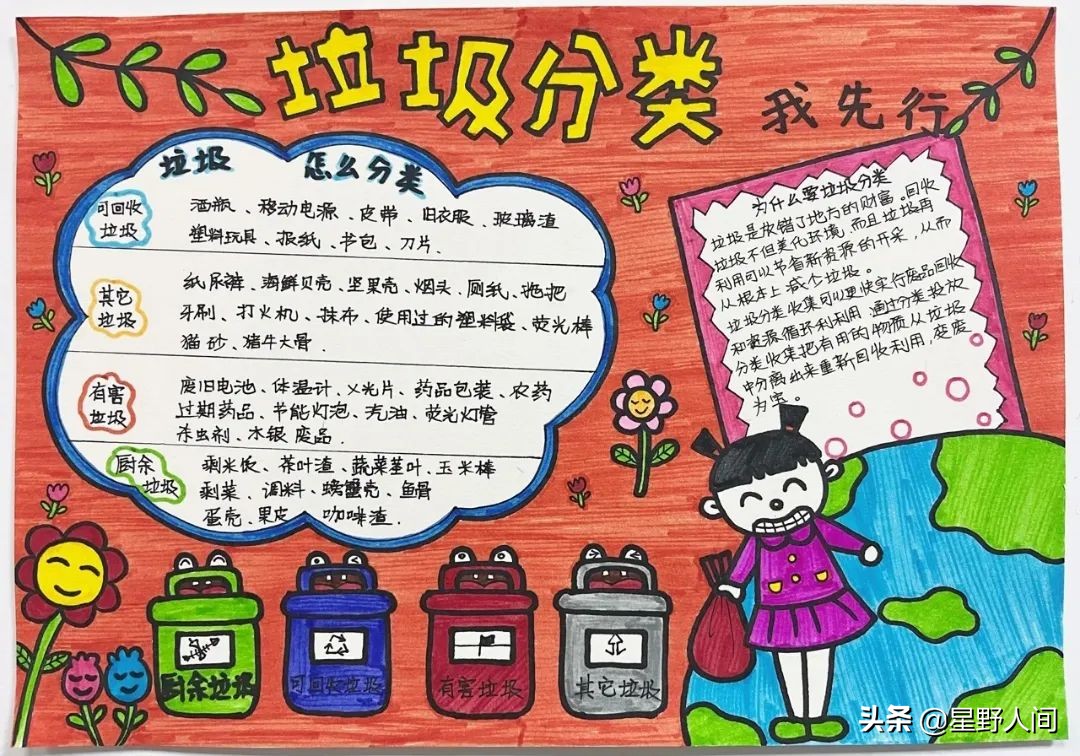 垃圾分类
我先行
垃圾 怎么分类
可回收
垃圾
酒瓶、移动电源、皮带、旧衣服、玻璃渣
塑料玩具、报纸、书包、刀片.
其它
垃圾
纸尿裤、海鲜贝壳、坚果壳、烟头、厕纸、拖把
牙刷、打火机、抹布、使用过的塑料袋、荧光棒
猫砂、猪牛大骨.
有害
垃圾
废旧电池、体温计、X光片、药品包装、农药
过期药品、节能灯泡、汽油、荧光灯管
杀虫剂、水银废品.
厨余
垃圾
剩米饭、茶叶渣、蔬菜茎叶、玉米棒
剩菜、调料、螃蟹壳、鱼骨
蛋壳、果皮、咖啡渣.
为什么要垃圾分类
垃圾是放错了地方的财富。回收
垃圾不但美化环境,而且垃圾再
利用可以节省新资源的开采,从而
从根本上减个垃圾。
垃圾分类收集可以更快实行废品回收
和资源循环利利用.通过分类投放
分类收集把有用的物质从垃圾
中分离出来重新回收利用,变废
为宝。
厨余垃圾
可回收垃圾
有害垃圾
其它垃圾
头条 @星野人间